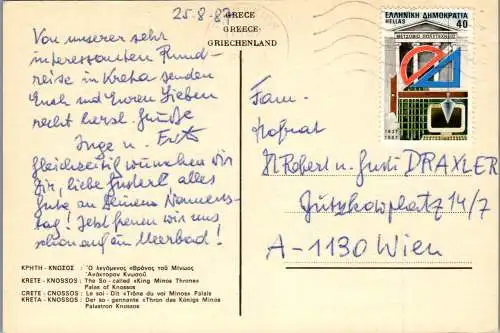 25.8.87
GRECE
GREECE
GRIECHENLAND
Von unserer sehr
interessanten Rund-
reise in Kreta senden
Euch und Euren Lieben
recht herzl. Grüße
Inge u.
Gleichzeitig wünschen wir
Dir, liebe Gusterl alles
Gute zu Deinem Namens-
tag! Jetzt freuen wir uns
schon auf ein Meerbad!
ΚΡΗΤΗ - ΚΝΩΣΟΣ : Ὁ λεγόμενος «Θρόνος τοῦ Μίνωος
Ἀνάκτορον Κνωσοῦ
KRETE - KNOSSOS : The So - called «King Minos Throne»
Palas of Knossos
CRETE - CNOSSOS : Le soi - Dit «Trône du voi Minos» Palais
KRETA - KNOSSOS : Der so - gennante «Thron des Königs Minos
Palastron Knossos
ΕΛΛΗΝΙΚΗ ΔΗΜΟΚΡΑΤΙΑ
HELLAS 40
ΜΕΤΣΟΒΙΟ ΠΟΛΥΤΕΧΝΕΙΟ
1837
1987
Fam.
Hofrat
Robert u. Gusti DRAXLER
Gutzkowplatz 14/7
A-1130 Wien